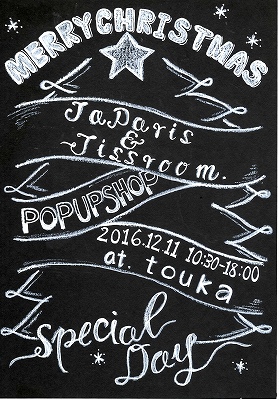 MERRYCHRISTMAS
JaParis
&
Jissroom.
POPUPSHOP
2016.12.11 10:30-18:00
at. touka
Special
Day